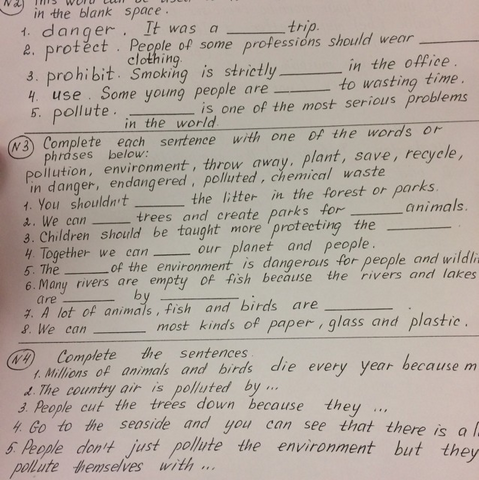 N2 This word can be used
in the blank space.
1. danger. It was a ______ trip.
2. protect. People of some professions should wear ______
clothing.
3. prohibit. Smoking is strictly ______ in the office.
4. use. Some young people are ______ to wasting time.
5. pollute. ______ is one of the most serious problems
in the world.
N3 Complete each sentence with one of the words or
phrases below:
pollution, environment, throw away, plant, save, recycle,
in danger, endangered, polluted, chemical waste
1. You shouldn't ______ the litter in the forest or parks.
2. We can ____ trees and create parks for ______ animals.
3. Children should be taught more protecting the ______.
4. Together we can ____ our planet and people.
5. The ____ of the environment is dangerous for people and wildli
6. Many rivers are empty of fish because the rivers and lakes
are ______ by ______.
7. A lot of animals, fish and birds are ______.
8. We can ______ most kinds of paper, glass and plastic.
N4 Complete the sentences
1. Millions of animals and birds die every year because m
2. The country air is polluted by ...
3. People cut the trees down because they ...
4. Go to the seaside and you can see that there is a l
5. People don't just pollute the environment but they
pollute themselves with ...